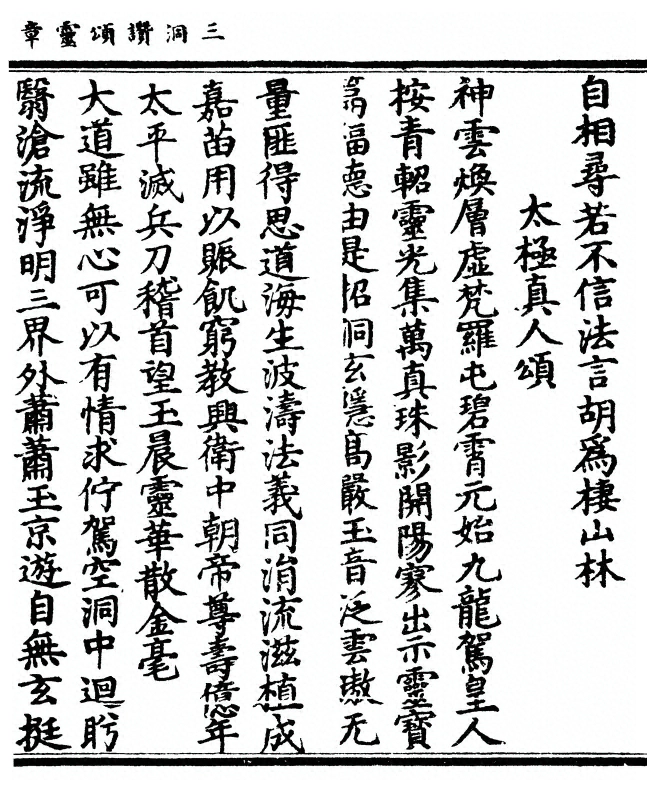 三洞讚頌靈章
自相尋若不信法言胡爲棲山林
太極真人頌
神雲煥層虛梵羅屯碧霄元始九龍駕皇人
按青軺靈光集萬真珠影開陽寥出示靈寶
篇福德由是招洞玄隱高嚴玉音泛雲璈无
量匪得思道海生波濤法義同涓流滋植成
嘉苗用以賑飢窮教興衛中朝帝尊壽億年
太平滅兵刀稽首望玉晨靈華散金毫
大道雖無心可以有情求佇駕空洞中迴眄
翳滄流淨明三界外蕭蕭玉京遊自無玄挺